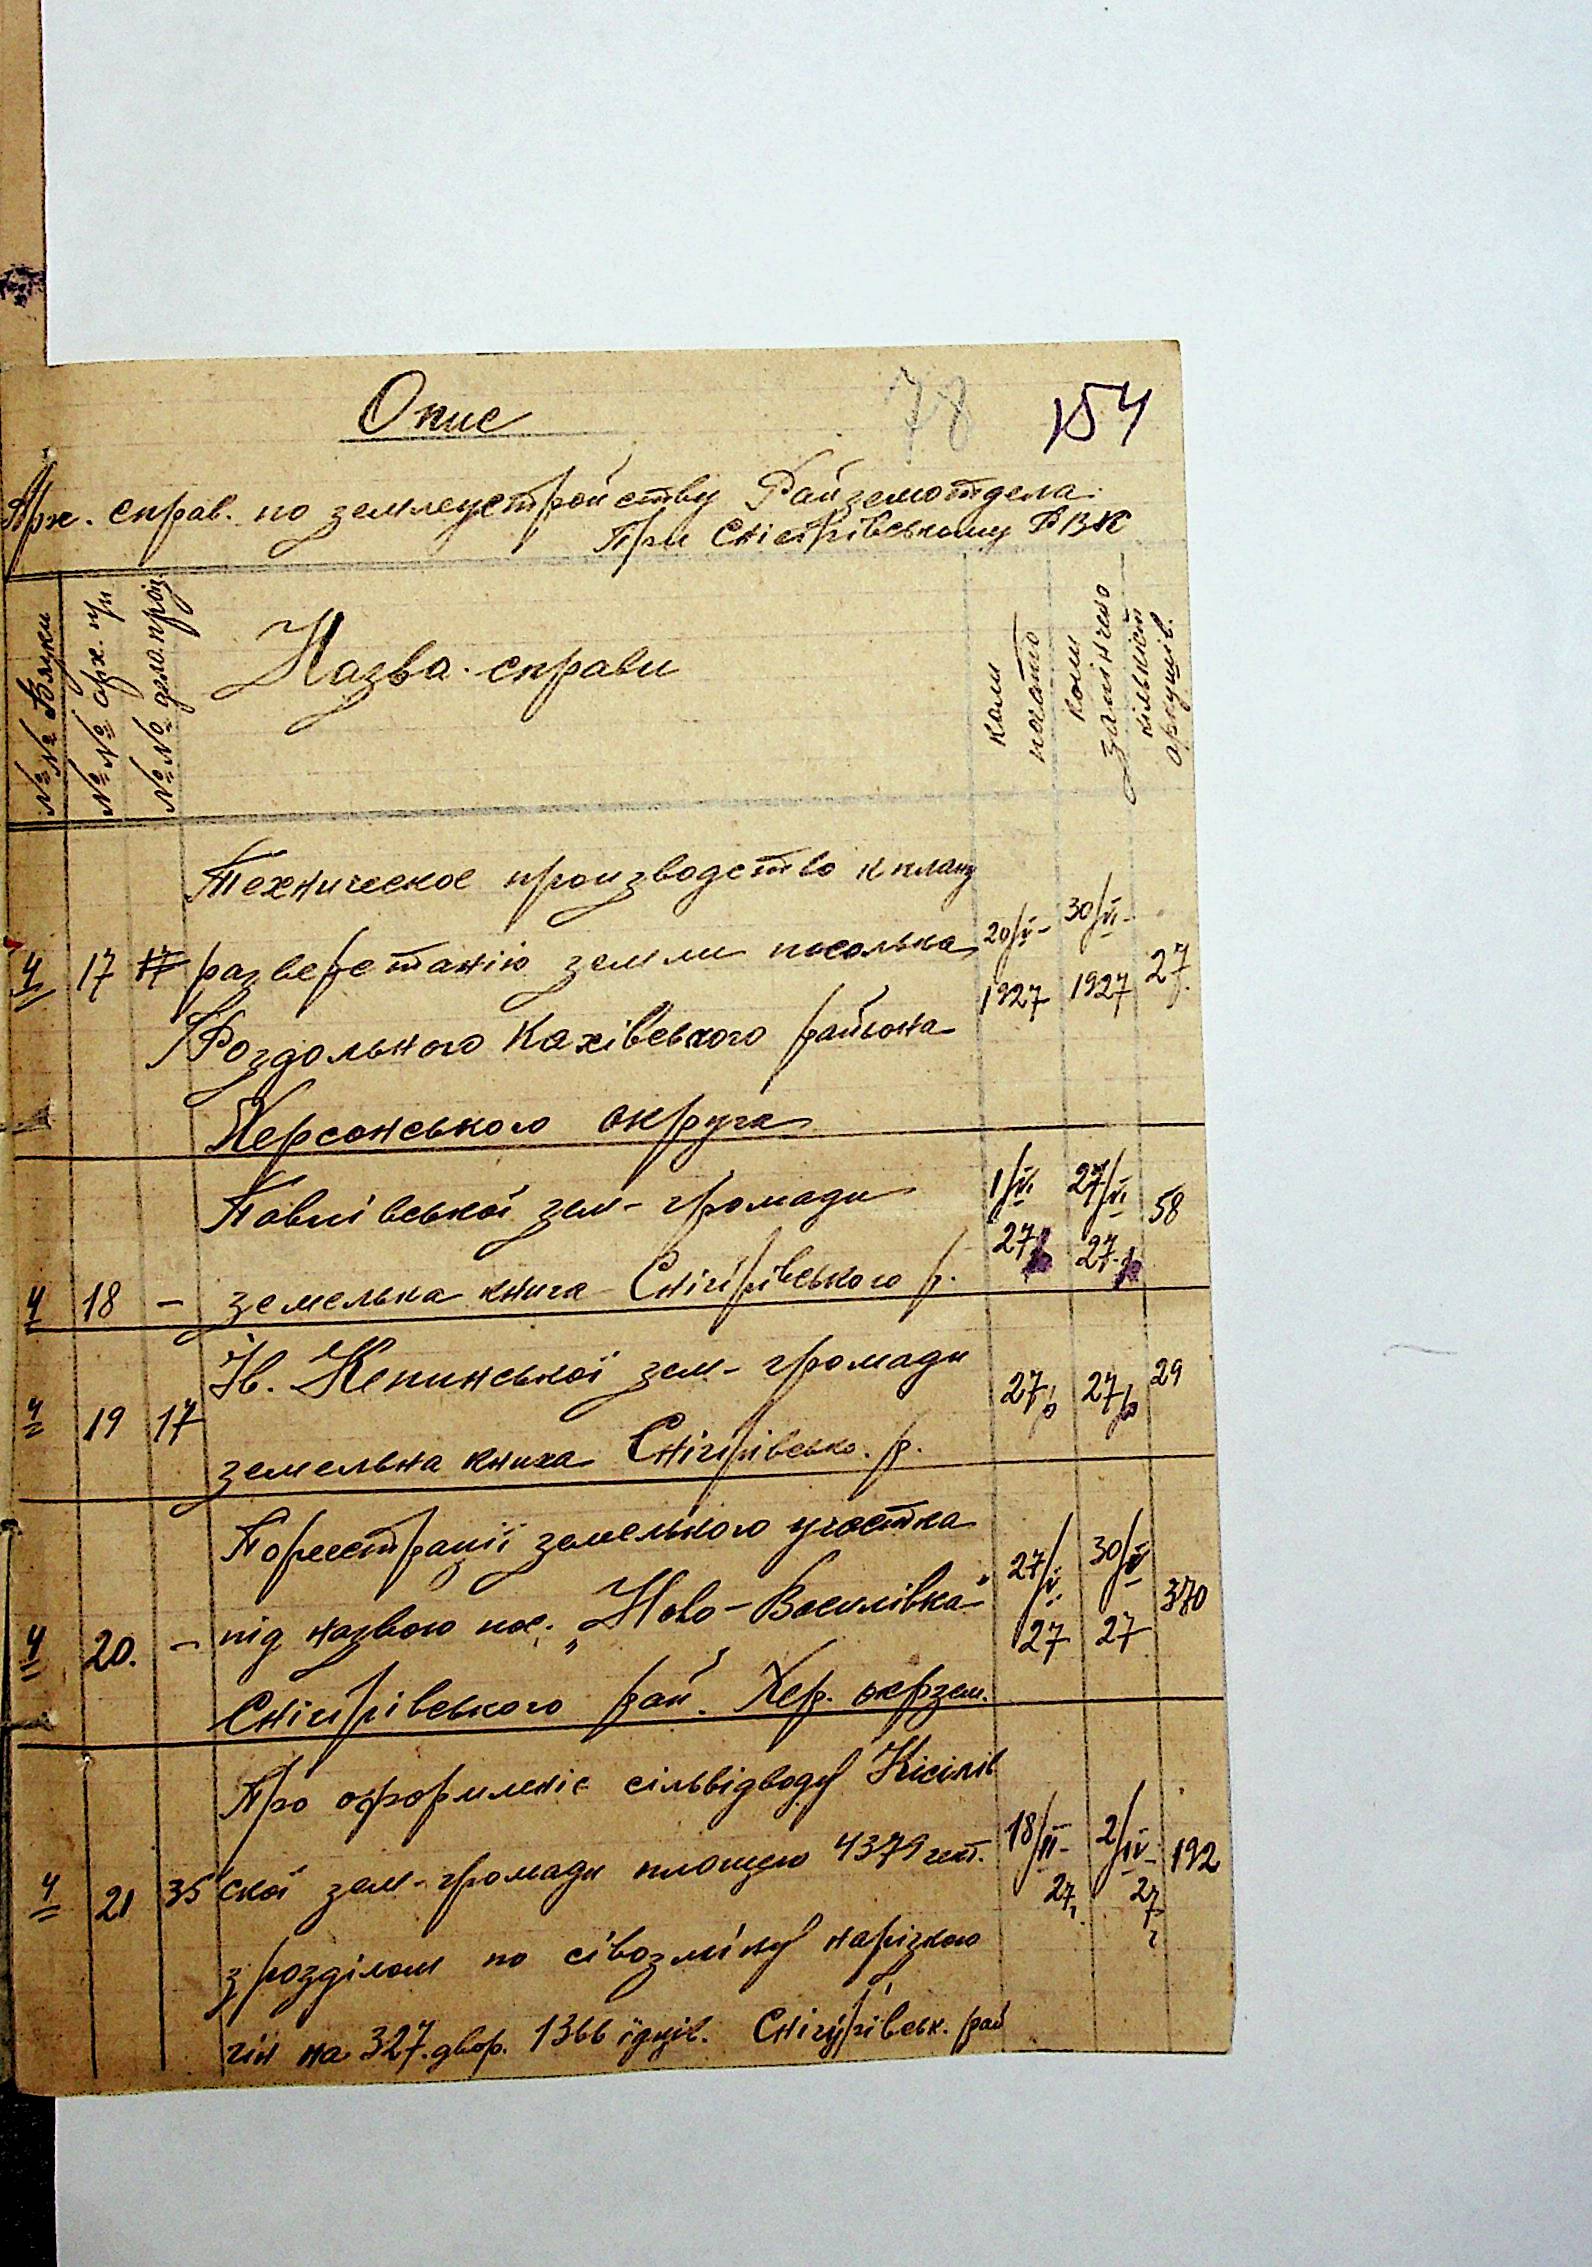 78 154
Опис
Арх. справ. по землеустройству Райземотдела
При Снігирівському РВК
№№ Вязки
№№ арх.
№№ дело.произ
Назва справи
коли почато
коли закінчено
кількіст аркушів.
Техническое производство к плану
20/V- 30/VI-
4 17 17 разверстанію земли поселка 27
1927 1927
Роздольного Кахівського району
Херсонського округа
Павлівської зем- громади 1/VI 27/VI 58
27р 27р
4 18 – земельна книга Снігірівського р.
Ів. Кепинської зем- громади 27р 27р 29
4 19 17
земельна книха Снігирівсько. р.
По реєстрації земельного участка
27/V 30/VI 370
4 20. – під назвою пос. „Ново-Василівка" 27 27
Снігирівського рай. Хер. окрзем.
Про оформленіє сільвідводу Кісілів
18/II- 2/IV- 192
4 21 35 ської зем-громади площею 4379 гект.
27. 27
з розділом по сівозміну нарізкою
на 327.двор. 1366 їдців. Снігурівськ. рай